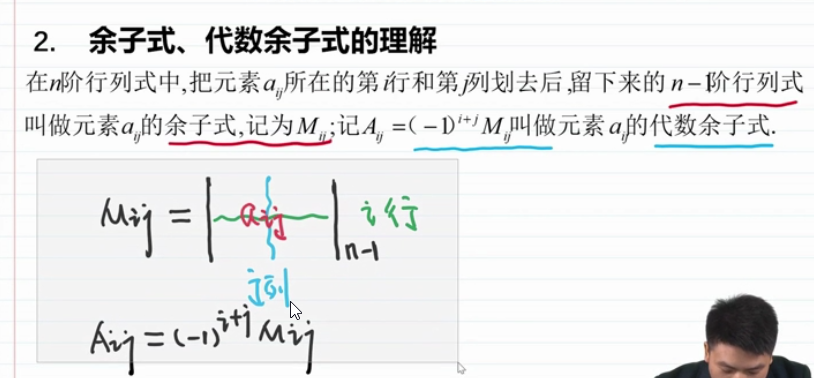 2. 余子式、代数余子式的理解
在n阶行列式中,把元素aᵢⱼ所在的第i行和第j列划去后,留下来的n−1阶行列式
叫做元素aᵢⱼ的余子式,记为Mᵢⱼ;记Aᵢⱼ=(−1)ⁱ⁺ʲMᵢⱼ叫做元素aᵢⱼ的代数余子式.
Mij = | aij | n-1 i行
j列
Aij = (-1)ⁱ⁺ʲ Mij